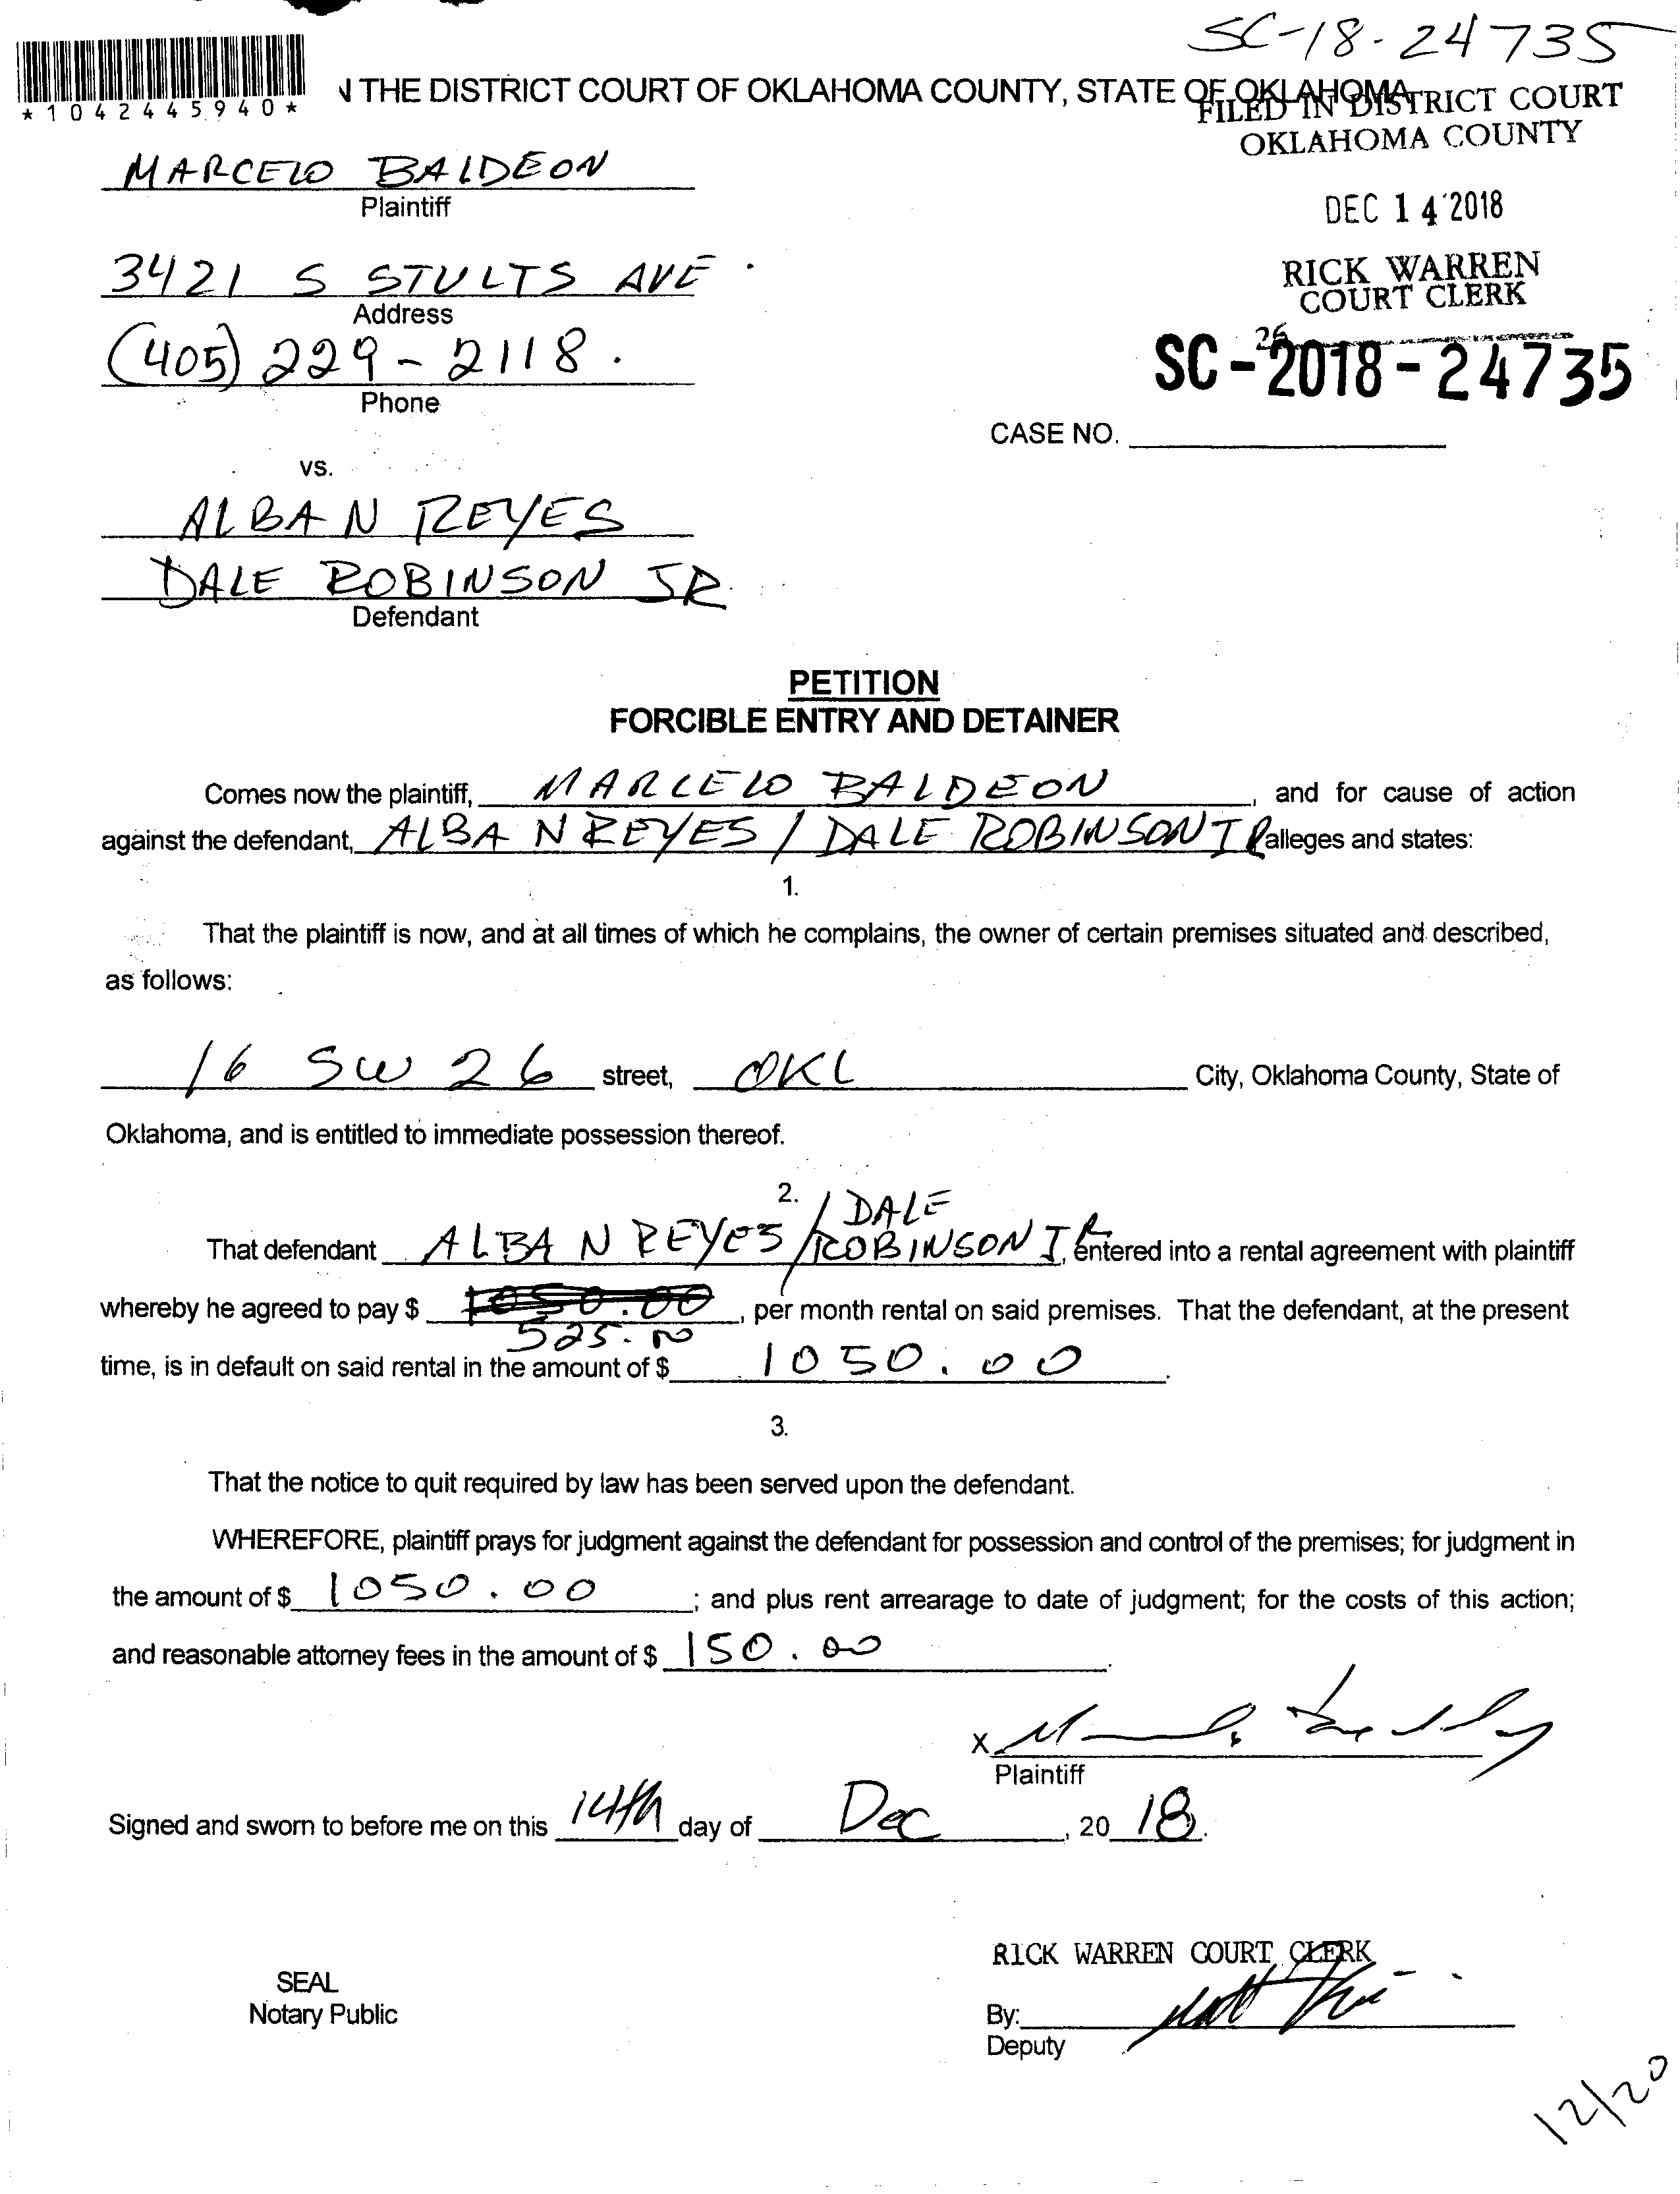 SC-18-24735
*1042445940*
N THE DISTRICT COURT OF OKLAHOMA COUNTY, STATE OF OKLAHOMA
FILED IN DISTRICT COURT
OKLAHOMA COUNTY
MARCELO BALDEON
Plaintiff
DEC 14 2018
3421 S STULTS AVE.
Address
RICK WARREN
COURT CLERK
(405) 229-2118.
Phone
26
SC-2018-24735
CASE NO.
vs.
ALBA N REYES
DALE ROBINSON JR.
Defendant
PETITION
FORCIBLE ENTRY AND DETAINER
Comes now the plaintiff, MARCELO BALDEON, and for cause of action
against the defendant, ALBA N REYES / DALE ROBINSON JR alleges and states:
1.
That the plaintiff is now, and at all times of which he complains, the owner of certain premises situated and described,
as follows:
16 SW 26 street, OKL City, Oklahoma County, State of
Oklahoma, and is entitled to immediate possession thereof.
2.
That defendant ALBA N REYES / DALE ROBINSON JR, entered into a rental agreement with plaintiff
whereby he agreed to pay $ 1050.00, per month rental on said premises. That the defendant, at the present
525.00
time, is in default on said rental in the amount of $ 1050.00.
3.
That the notice to quit required by law has been served upon the defendant.
WHEREFORE, plaintiff prays for judgment against the defendant for possession and control of the premises; for judgment in
the amount of $ 1050.00; and plus rent arrearage to date of judgment; for the costs of this action;
and reasonable attorney fees in the amount of $ 150.00.
X
Plaintiff
Signed and sworn to before me on this 14th day of Dec, 20 18.
RICK WARREN COURT CLERK
SEAL
Notary Public
By:
Deputy
12/20